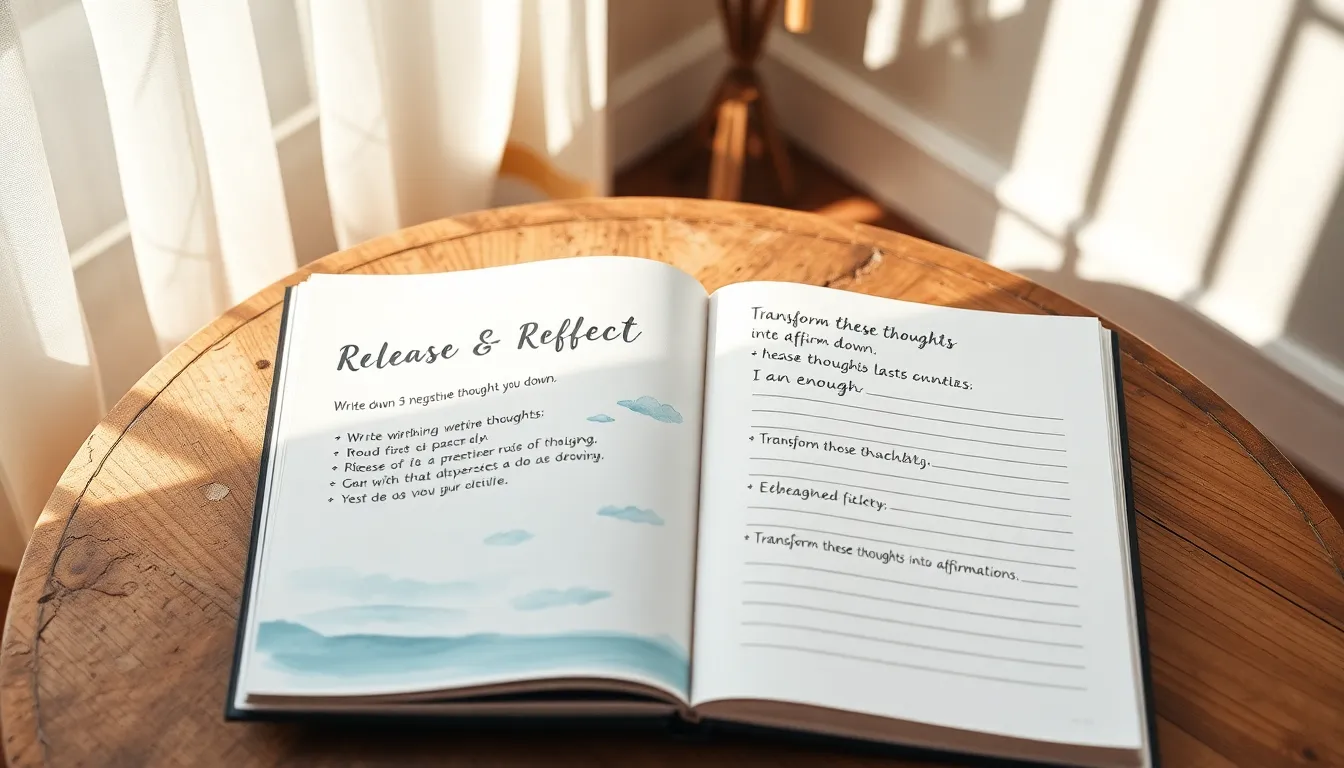 Release & Reffect
Write down 5 negstive thought you down.
+ Write wirfhing wetire thoughts:
+ Roud first of pacer ely.
+ Ricese of is a prectiner ruis of thalqng.
+ Can with that alsperzes a do as droviry.
+ Yest de as you gur citille.
Transform these thoughts
into affirm down.
+ hease thoughts lasts cunitlas:
I an enough.
+ Transform those thachlaltg.
+ Eebeagined fitlety:
+ Transform these thoughts into affirmations.